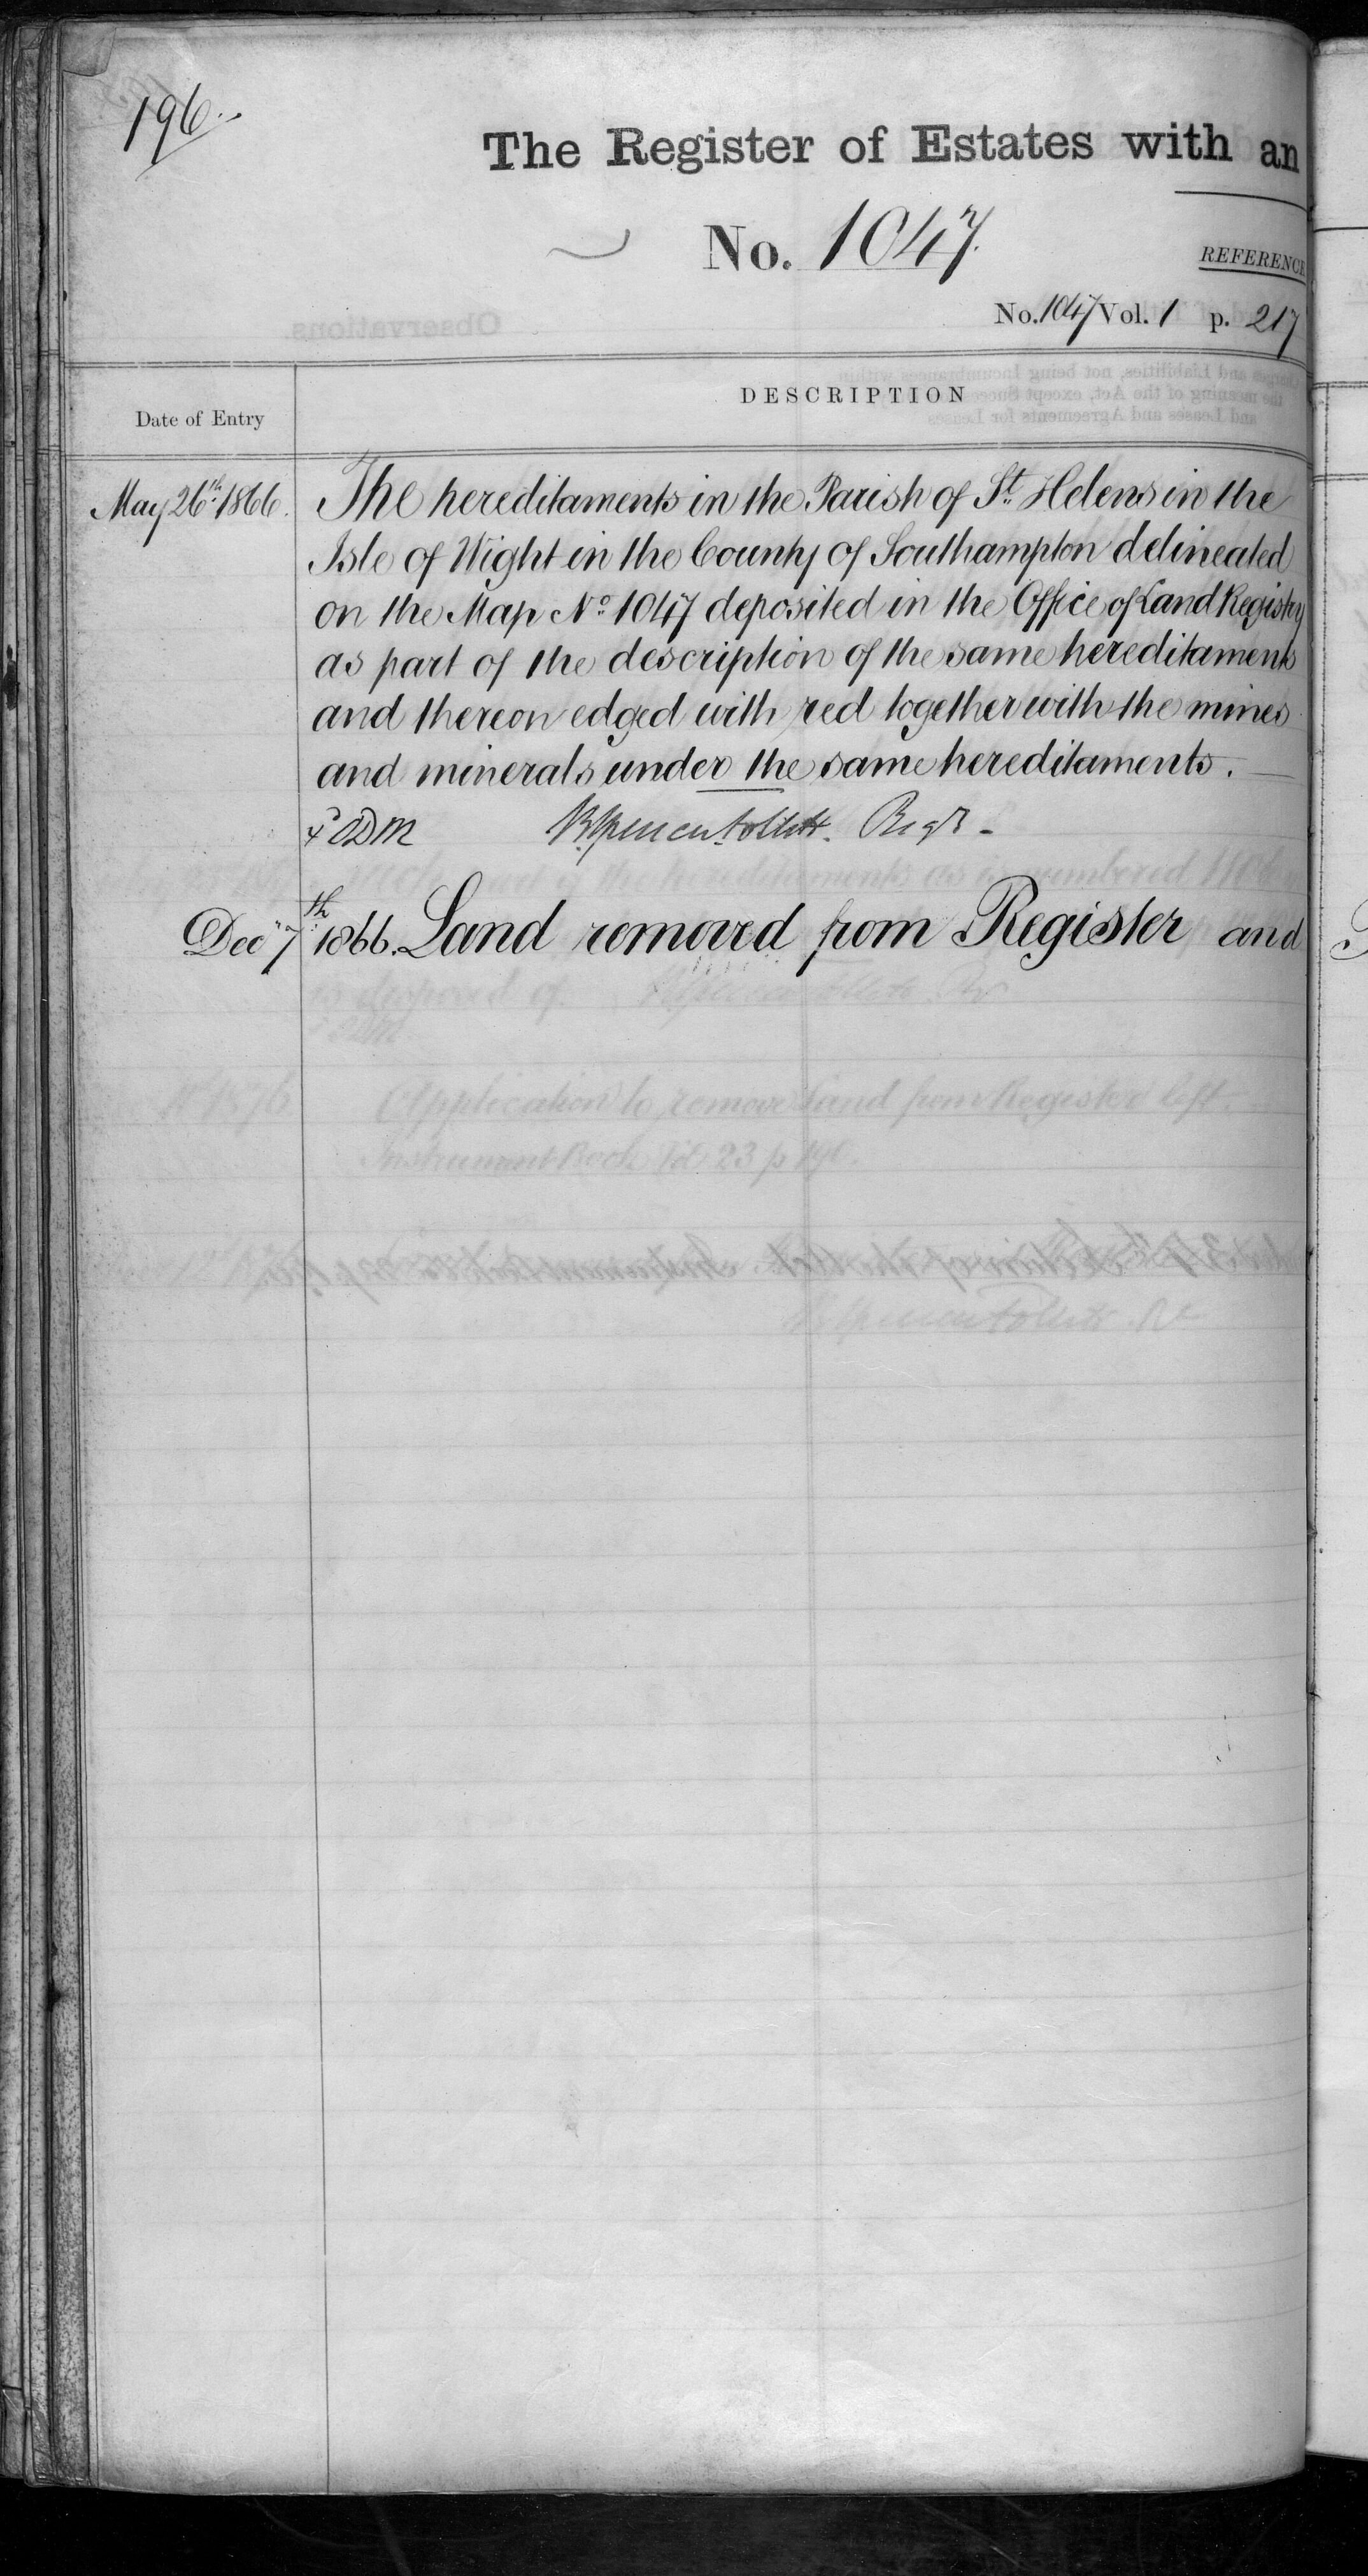 196
The Register of Estates with an
No. 1047.
REFERENCE
No. 1047 Vol. 1 p. 217
Date of Entry
DESCRIPTION
May 26th 1866. The hereditaments in the Parish of St. Helens in the
Isle of Wight in the County of Southampton delineated
on the Map No. 1047 deposited in the Office of Land Registry
as part of the description of the same hereditaments
and thereon edged with red together with the mines
and minerals under the same hereditaments.
Regr.
Dec 7th 1866. Land removed from Register and